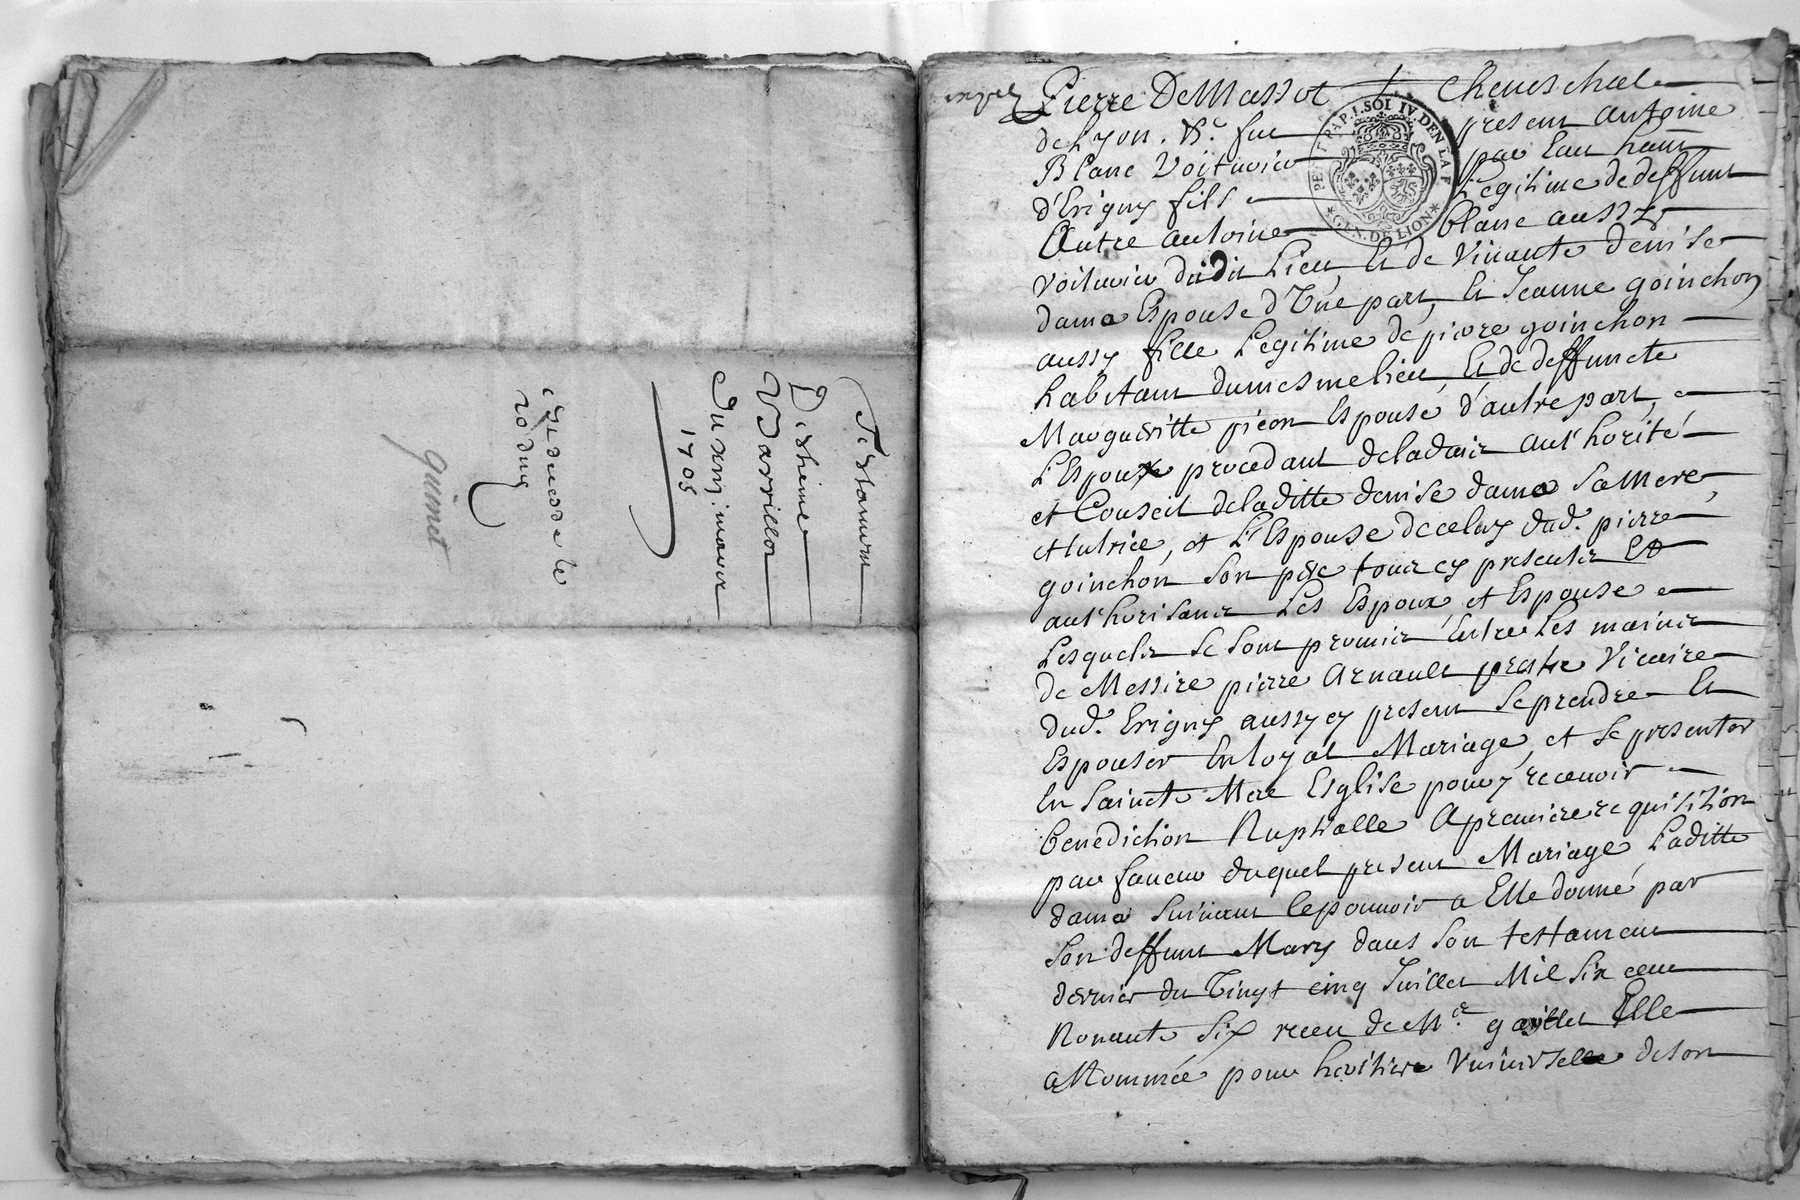 Testament
Destiene
Varrillon
Du xvij mars
1705
quinet
Pierre DeMassot Cheneschal
de Lyon. Sr. fut present antoine
Blanc Voituvier par Eau hant
d'Erigny fils Legitime de deffunt
Autre antoine blanc aussy
voituvier dudit Lieu, Et de Vivante denise
dama Espouse d'Une part, Et Jeanne goinchon
aussy fille Legitime de pierre goinchon
habitant dumesme lieu, Et de deffuncte
Margueritte pieon Espouse d'autre part,
L'Espoux procedant deladvis aut'horité
et Conseil deladitte denise dama sa Mere,
et tutrice, et L'Espouse de celuy dud. pierre
goinchon son pere tous cy presents Et
aut'horisant Les Espoux, et Espouse
Lesquels se sont promis Entre Les mains
de Messire pierre Arnault prestre Vicaire
dud. Erigny aussy cy present se prendre Et
Espouser En loyal Mariage, et se presenter
En saincte Mere Esglise pour y recevoir
benediction Nuptialle A premiere requisition
par faveur duquel present Mariage, Laditte
dama suivant le pouvoir a Elle donné par
son deffunt Mary dans son testament
dernier du Vingt cinq Juillet Mil six cent
Nonante six receu de Me. gaillet Elle
a Nommée pour heritiere Universelle de son
PAP. I. SOI IV. DEN LA F
GEN. DE LION